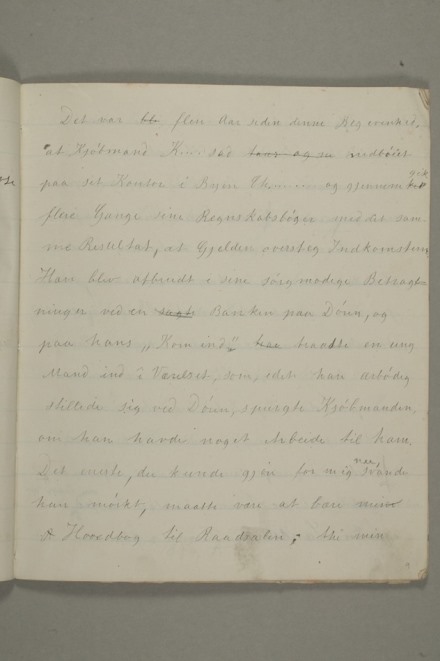 Det var ble flere Aar siden denne Begivenhed,
at Kjöbmand K.... sad taus og nedböiet
paa sit Kontor i Byen Th...... og gjennemgik
flere Gange sine Regnskabsböger med det sam-
me Resultat, at Gjelden oversteg Indkomsten
Han blev afbrudt i sine sörgmodige Betragt-
ninger ved en sagte Banken paa Dören, og
paa hans „Kom ind!" traadte en ung
Mand ind i Værelset, som, idet han ærbödig
stillede sig ved Dören, spurgte Kjöbmanden,
om han havde noget Arbeide til ham.
Det eneste, der kunde gjöres for mig nu, svarede
han mörkt, maatte være at bære min
Hovedbog til Raadsalen; thi min